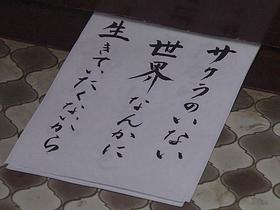 サクラのいない
世界なんかに
生きていたくないから